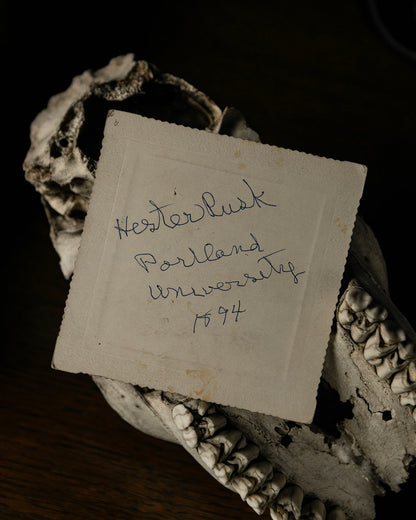 Hester Rusk
Portland
University
1894